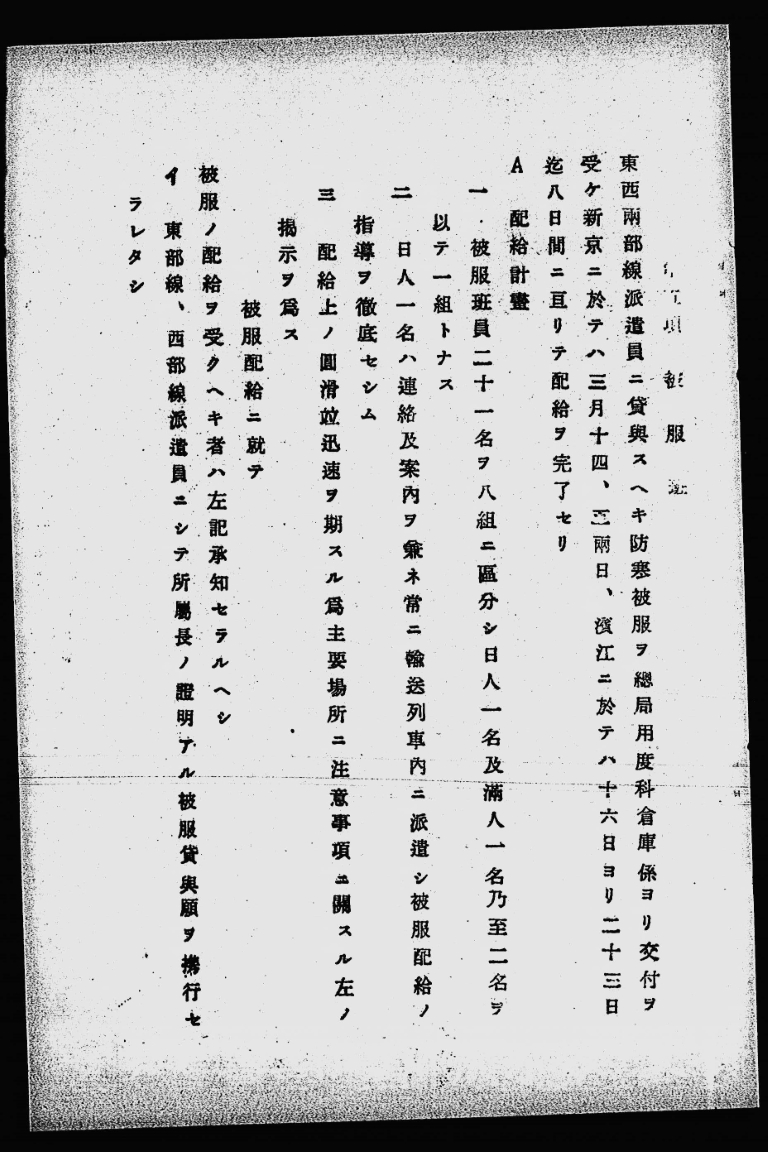 項 被服
東西兩部線派遣員ニ貸與スヘキ防寒被服ヲ總局用度科倉庫係ヨリ交付ヲ
受ケ新京ニ於テハ三月十四、五兩日、濱江ニ於テハ十六日ヨリ二十三日
迄八日間ニ亘リテ配給ヲ完了セリ
A 配給計畫
一 被服班員二十一名ヲ八組ニ區分シ日人一名及滿人一名乃至二名ヲ
以テ一組トナス
二 日人一名ハ連絡及案內ヲ兼ネ常ニ輸送列車內ニ派遣シ被服配給ノ
指導ヲ徹底セシム
三 配給上ノ圓滑竝迅速ヲ期スル爲主要場所ニ注意事項ニ關スル左ノ
揭示ヲ爲ス
被服配給ニ就テ
被服ノ配給ヲ受クヘキ者ハ左記承知セラルヘシ
イ 東部線、西部線派遣員ニシテ所屬長ノ證明アル被服貸與願ヲ携行セ
ラレタシ